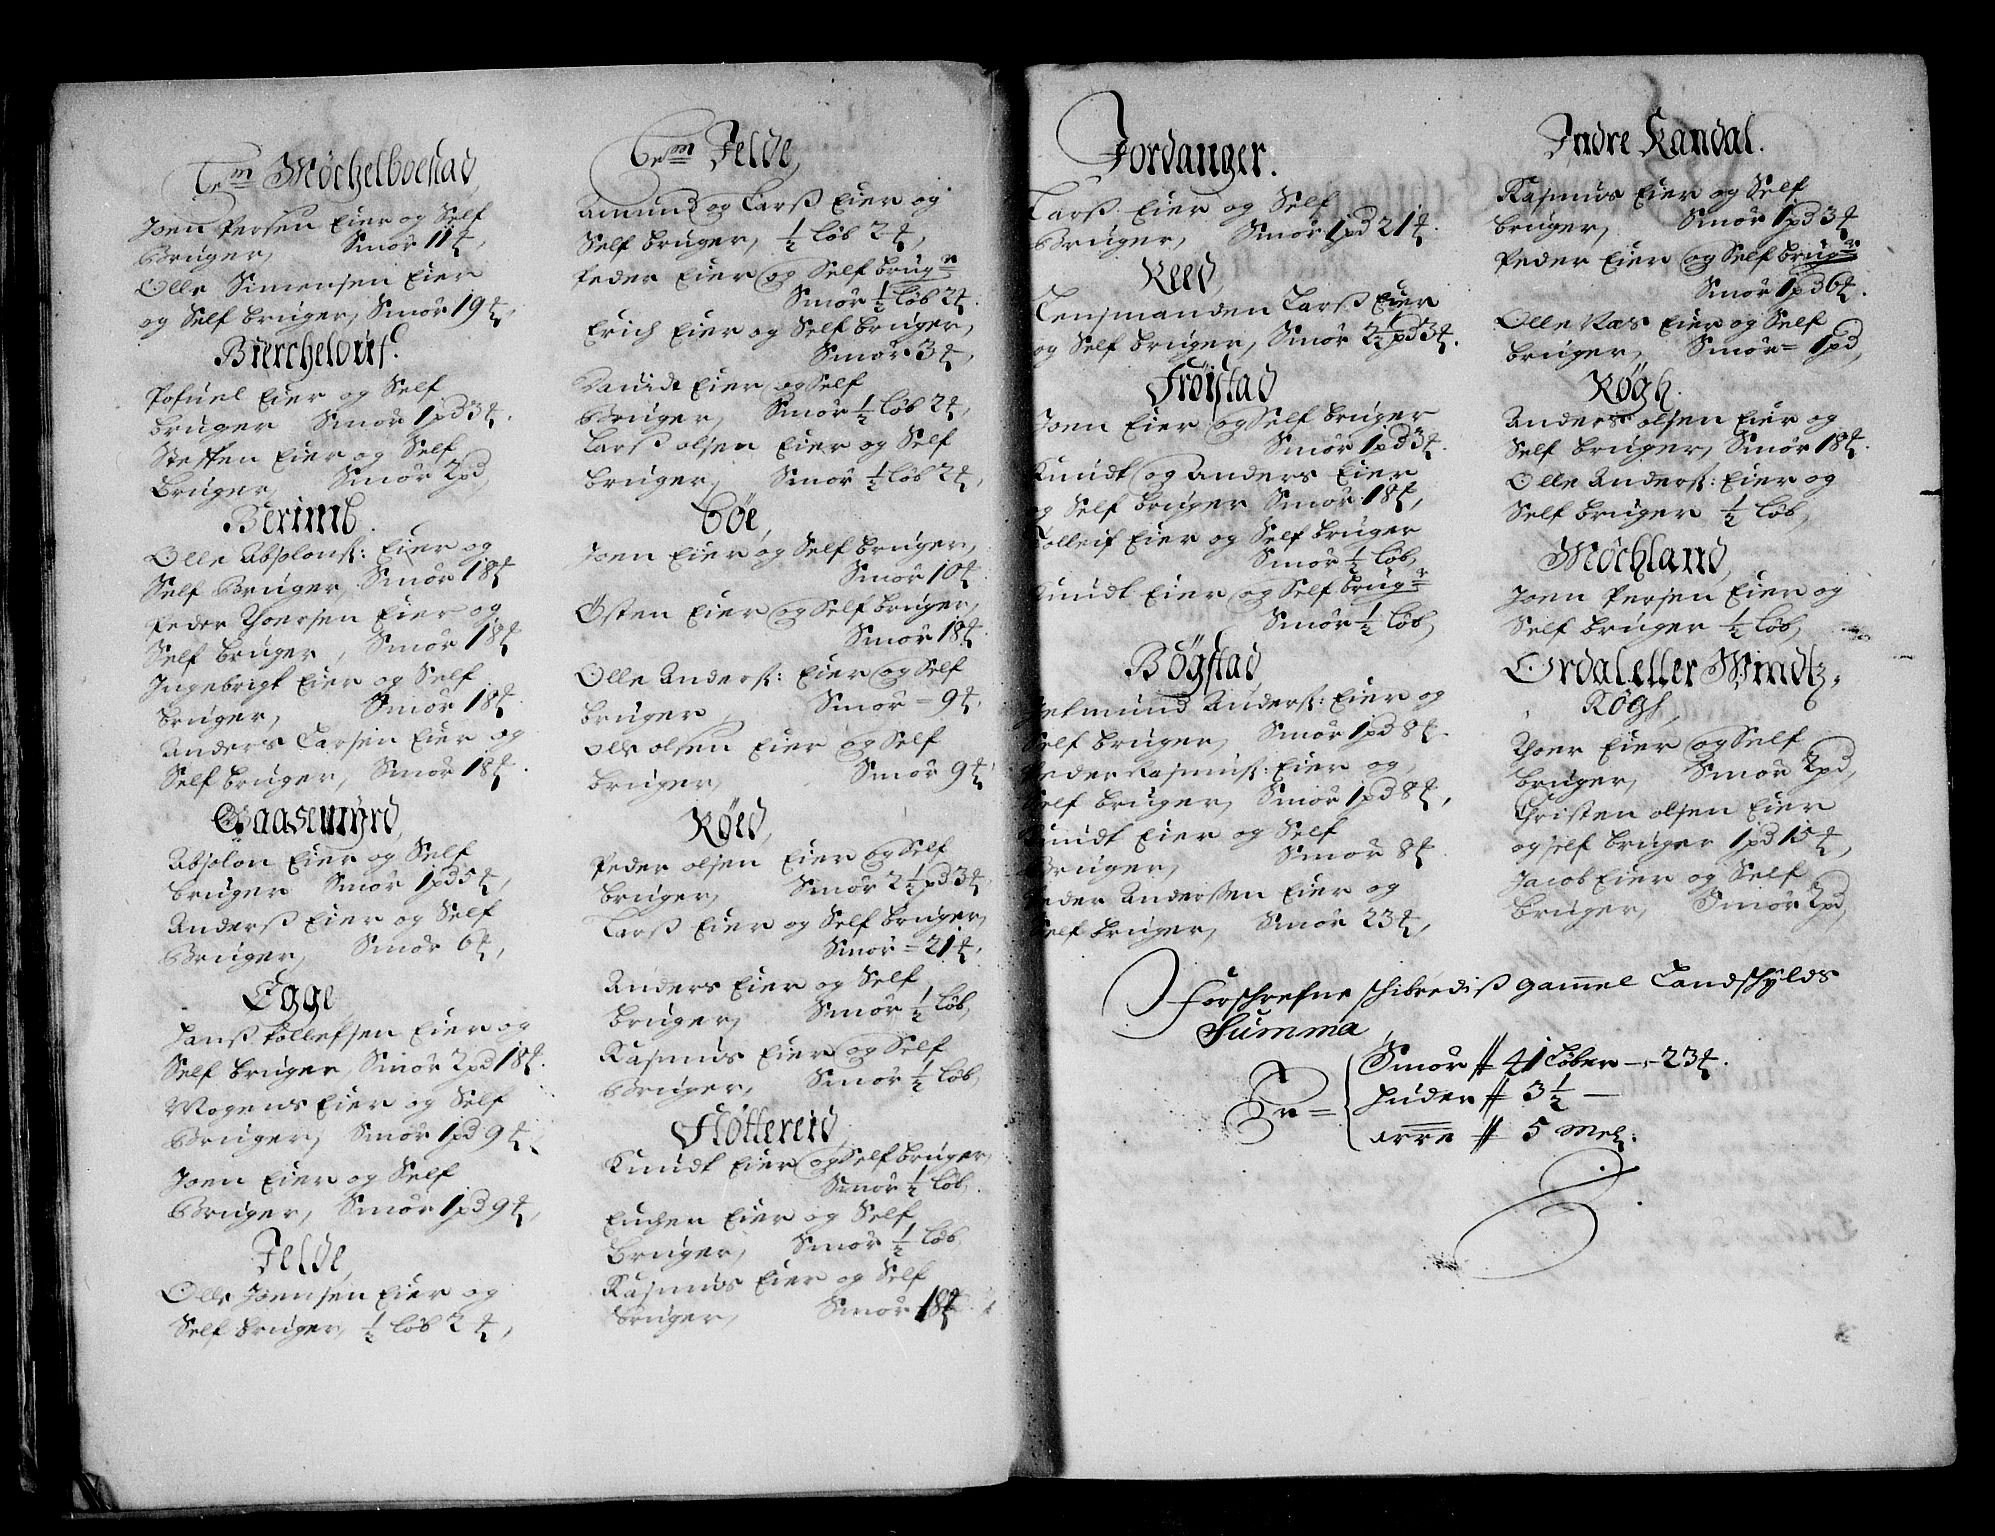 Tem Møchelboestad,
Joen Persen Eier og Self
Bruger, Smør 11 ℔,
Olle Simensen Eier
og Self bruger, Smør 19 ℔,
Bierchelout
Pofuel Eier og Self
bruger Smør 1 pd 3 ℔.
Steffen Eier og Self
bruger, Smør 2 pd,
Berimb.
Olle Absolonß: Eier og
Self Bruger, Smør 18 ℔
Peder Thoersen Eier og
Self bruger, Smør 18 ℔
Ingebrigt Eier og Self
bruger, Smør 18 ℔.
Anders Larsen Eier og
Self bruger, Smør 18 ℔.
Gaasemyrd,
Absolon Eier og Self
bruger Smør 1 pd 5 ℔,
Anderß Eier og Self
Bruger, Smør 6 ℔,
Egge,
Hanß Tollefsen Eier og
Self bruger, Smør 2 pd 18 ℔.
Mogens Eier og Self
Bruger, Smør 1 pd 9 ℔,
Joen Eier og Self
Bruger, Smør 1 pd 9 ℔,
Felde,
Olle Joensen Eier og
Self bruger, ½ løb 2 ℔,
Tem Felde,
Amund og Larß Eier og
Self bruger, ½ løb 2 ℔,
Peder Eier og Self brugr
Smør ½ løb 2 ℔.
Erich Eier og Self bruger,
Smør 3 ℔,
Dauidt Eier og Self
Bruger, Smør ½ løb 2 ℔,
Larß olsen Eier og Self
bruger, Smør ½ løb 2 ℔,
bøe,
Joen Eier og Self bruger,
Smør 10 ℔.
Østen Eier og Self bruger,
Smør 18 ℔.
Olle Anderß: Eier og Self
bruger, Smør = 9 ℔,
Ole olsen Eier og Self
bruger, Smør 9 ℔,
Røed,
Peder olsen Eier og Self
bruger, Smør 2½ pd 3 ℔,
Larß Eier og Self bruger,
Smør = 21 ℔,
Anders Eier og Self
bruger, Smør ½ løb,
Rasmus Eier og Self
Bruger, Smør ½ løb,
Fløttereid
Knudt Eier og Self bruger,
Smør ½ løb.
Euchen Eier og Self
bruger, Smør ½ løb
Rasmus Eier og Self
bruger, Smør 18 ℔.
Jordanger.
Larß Eier og Self
Bruger, Smør 1 pd 21 ℔.
Reed,
Lensmanden Larß Eier
og Self bruger, Smør 2½ pd 3 ℔.
Frøistad
Joen Eier og Self bruger
Smør 1 pd 3 ℔.
Knudt og Anders Eier
og Self bruger Smør 18 ℔,
Tolleif Eier og Self bruger
Smør ½ løb,
Knudt Eier og Self brugr
Smør ½ løb,
Bøgstad
Jetmund Anderß: Eier og
Self bruger, Smør 1 pd 8 ℔.
Peder Rasmusß: Eier og
Self bruger, Smør 1 pd 8 ℔,
Knudt Eier og Self
Bruger, Smør 8 ℔.
Peder Anderssen Eier og
Self bruger, Smør 23 ℔,
Indre Kandal.
Rasmus Eier og Self
bruger, Smør 1 pd 3 ℔
Peder Eier og Self brugr
Smør 1 pd 6 ℔.
Olle Aas Eier og Self
bruger, Smør = 1 pd,
Røgh.
Anders olsen Eier og
Self bruger, Smør 18 ℔.
Olle Anderß: Eier og
Self bruger ½ løb,
Møchland,
Joen Persen Eier og
Self bruger ½ løb,
Ordal eller Windtz,
Røgh,
Thoer Eier og Self
bruger, Smør 2 pd,
Christen olsen Eier
og self bruger 1 pd 15 ℔,
Jacob Eier og Self
bruger, Smør 2 pd,
Forschrefne schibrediß gammel Landschylds
Summa
Er =
Smør // 41 Løber — 23 ℔.
Huder // 3½ —
erre // 5 mel: